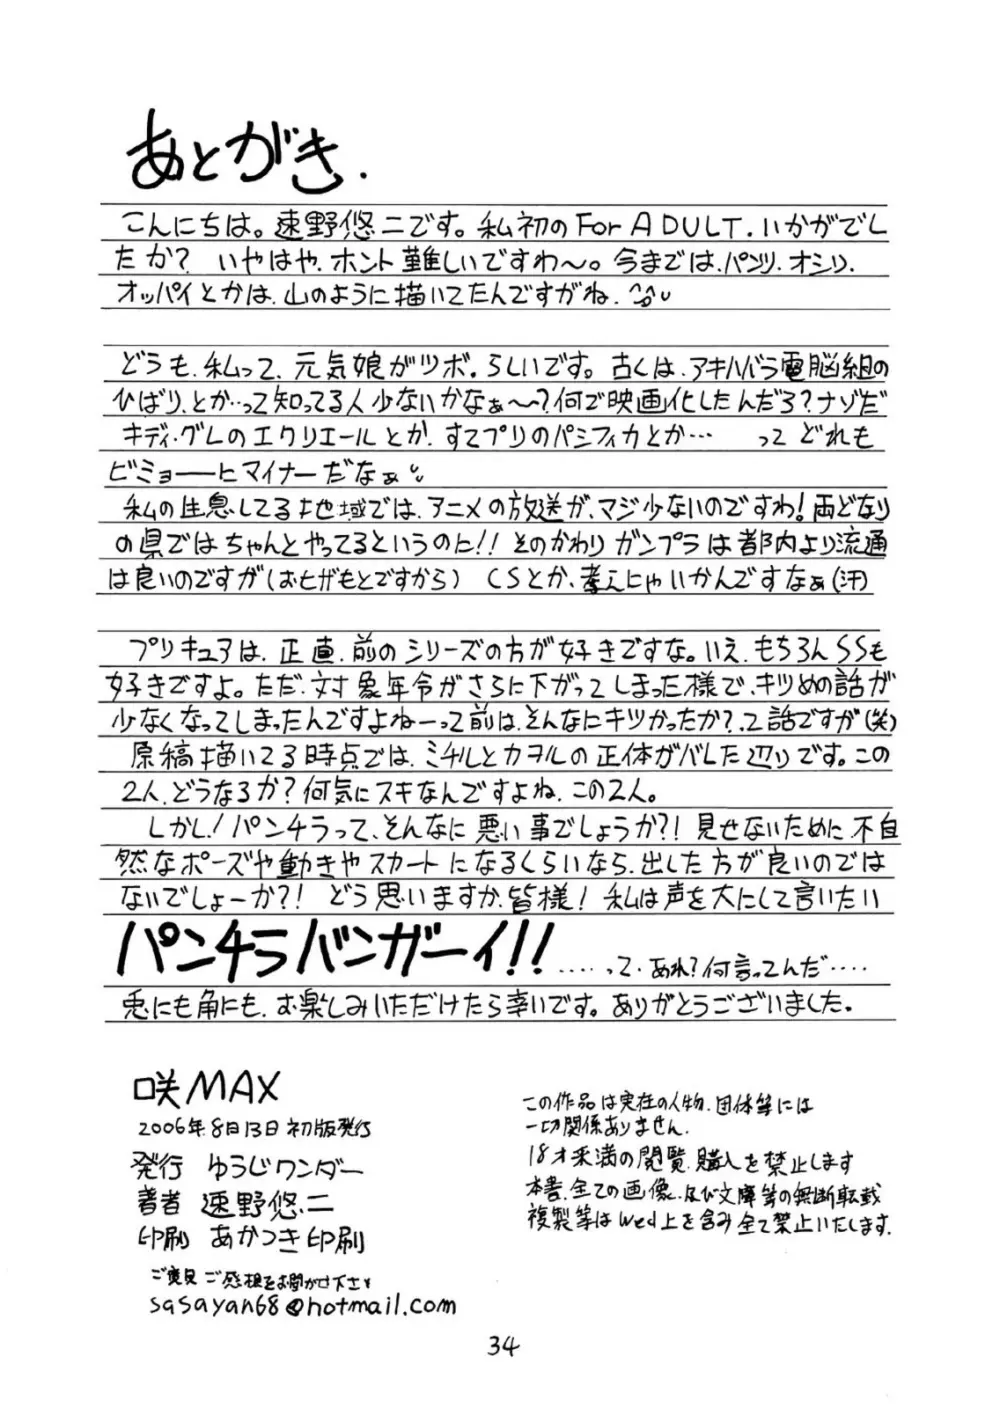 あとがき.
こんにちは。速野悠二です。私初のFor ADULT.いかがでし
たか? いやはや、ホント難しいですわ〜。今までは、パンツ、オシリ、
オッパイとかは、山のように描いてたんですがね.
どうも、私って、元気娘がツボ。らしいです。古くは、アキハバラ電脳組の
ひばり、とか…って知ってる人少ないかなぁ〜〜?何で映画化したんだろ?ナゾだ
キディ・グレのエクリエールとか、すてプリのパシフィカとか… って どれも
ビミョーーーにマイナーだなぁ
私の生息してる地域では、アニメの放送が、マジ少ないのですわ!両どなり
の県ではちゃんとやってるというのに!!そのかわりガンプラは都内より流通
は良いのですが(おヒザもとですから) CSとか、考えにゃいかんですなぁ(汗)
プリキュアは、正直、前のシリーズの方が好きですな。いえ、もちろんSSも
好きですよ。ただ、対象年令がさらに下がってしまった様で、キツめの話が
少なくなってしまったんですよねーって前は、そんなにキツかったか?、て話ですが(笑)
原稿描いてる時点では、ミチルとカヲルの正体がバレした辺りです。この
2人、どうなるか?何気にスキなんですよね、この2人。
しかし!パンチラって、そんなに悪い事でしょうか?!見せないために、不自
然なポーズや動きやスカートになるくらいなら、出した方が良いのでは
ないでしょーか?! どう思いますか、皆様! 私は声を大にして言いたい
パンチラバンガーイ!! ....って、あれ?何言ってんだ....
兎にも角にも、お楽しみいただけたら幸いです。ありがとうございました。
咲MAX
2006年.8月13日 初版発行
発行 ゆうじワンダー
著者 速野悠二
印刷 あかつき印刷
ご意見 ご感想をお聞かせ下さい
sasayan68@hotmail.com
この作品は実在の人物、団体等には
一切関係ありません.
18才未満の閲覧、購入を禁止します
本書、全ての画像、及び文庫等の無断転載
複製等はWed上を含み全て禁止いたします.
34